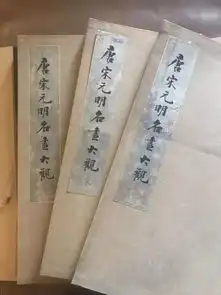 唐宋元明名畫大觀
唐宋元明名畫大觀
唐宋元明名畫大觀